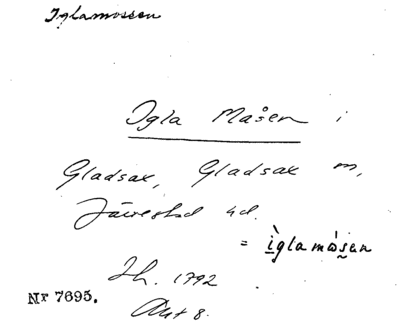 Iglamossen
Igla Måsen i
Gladsax, Gladsax m,
Järrestad hd.
= ìglamò̀sen
Sh. 1792
Akt 8.
Nr 7695.